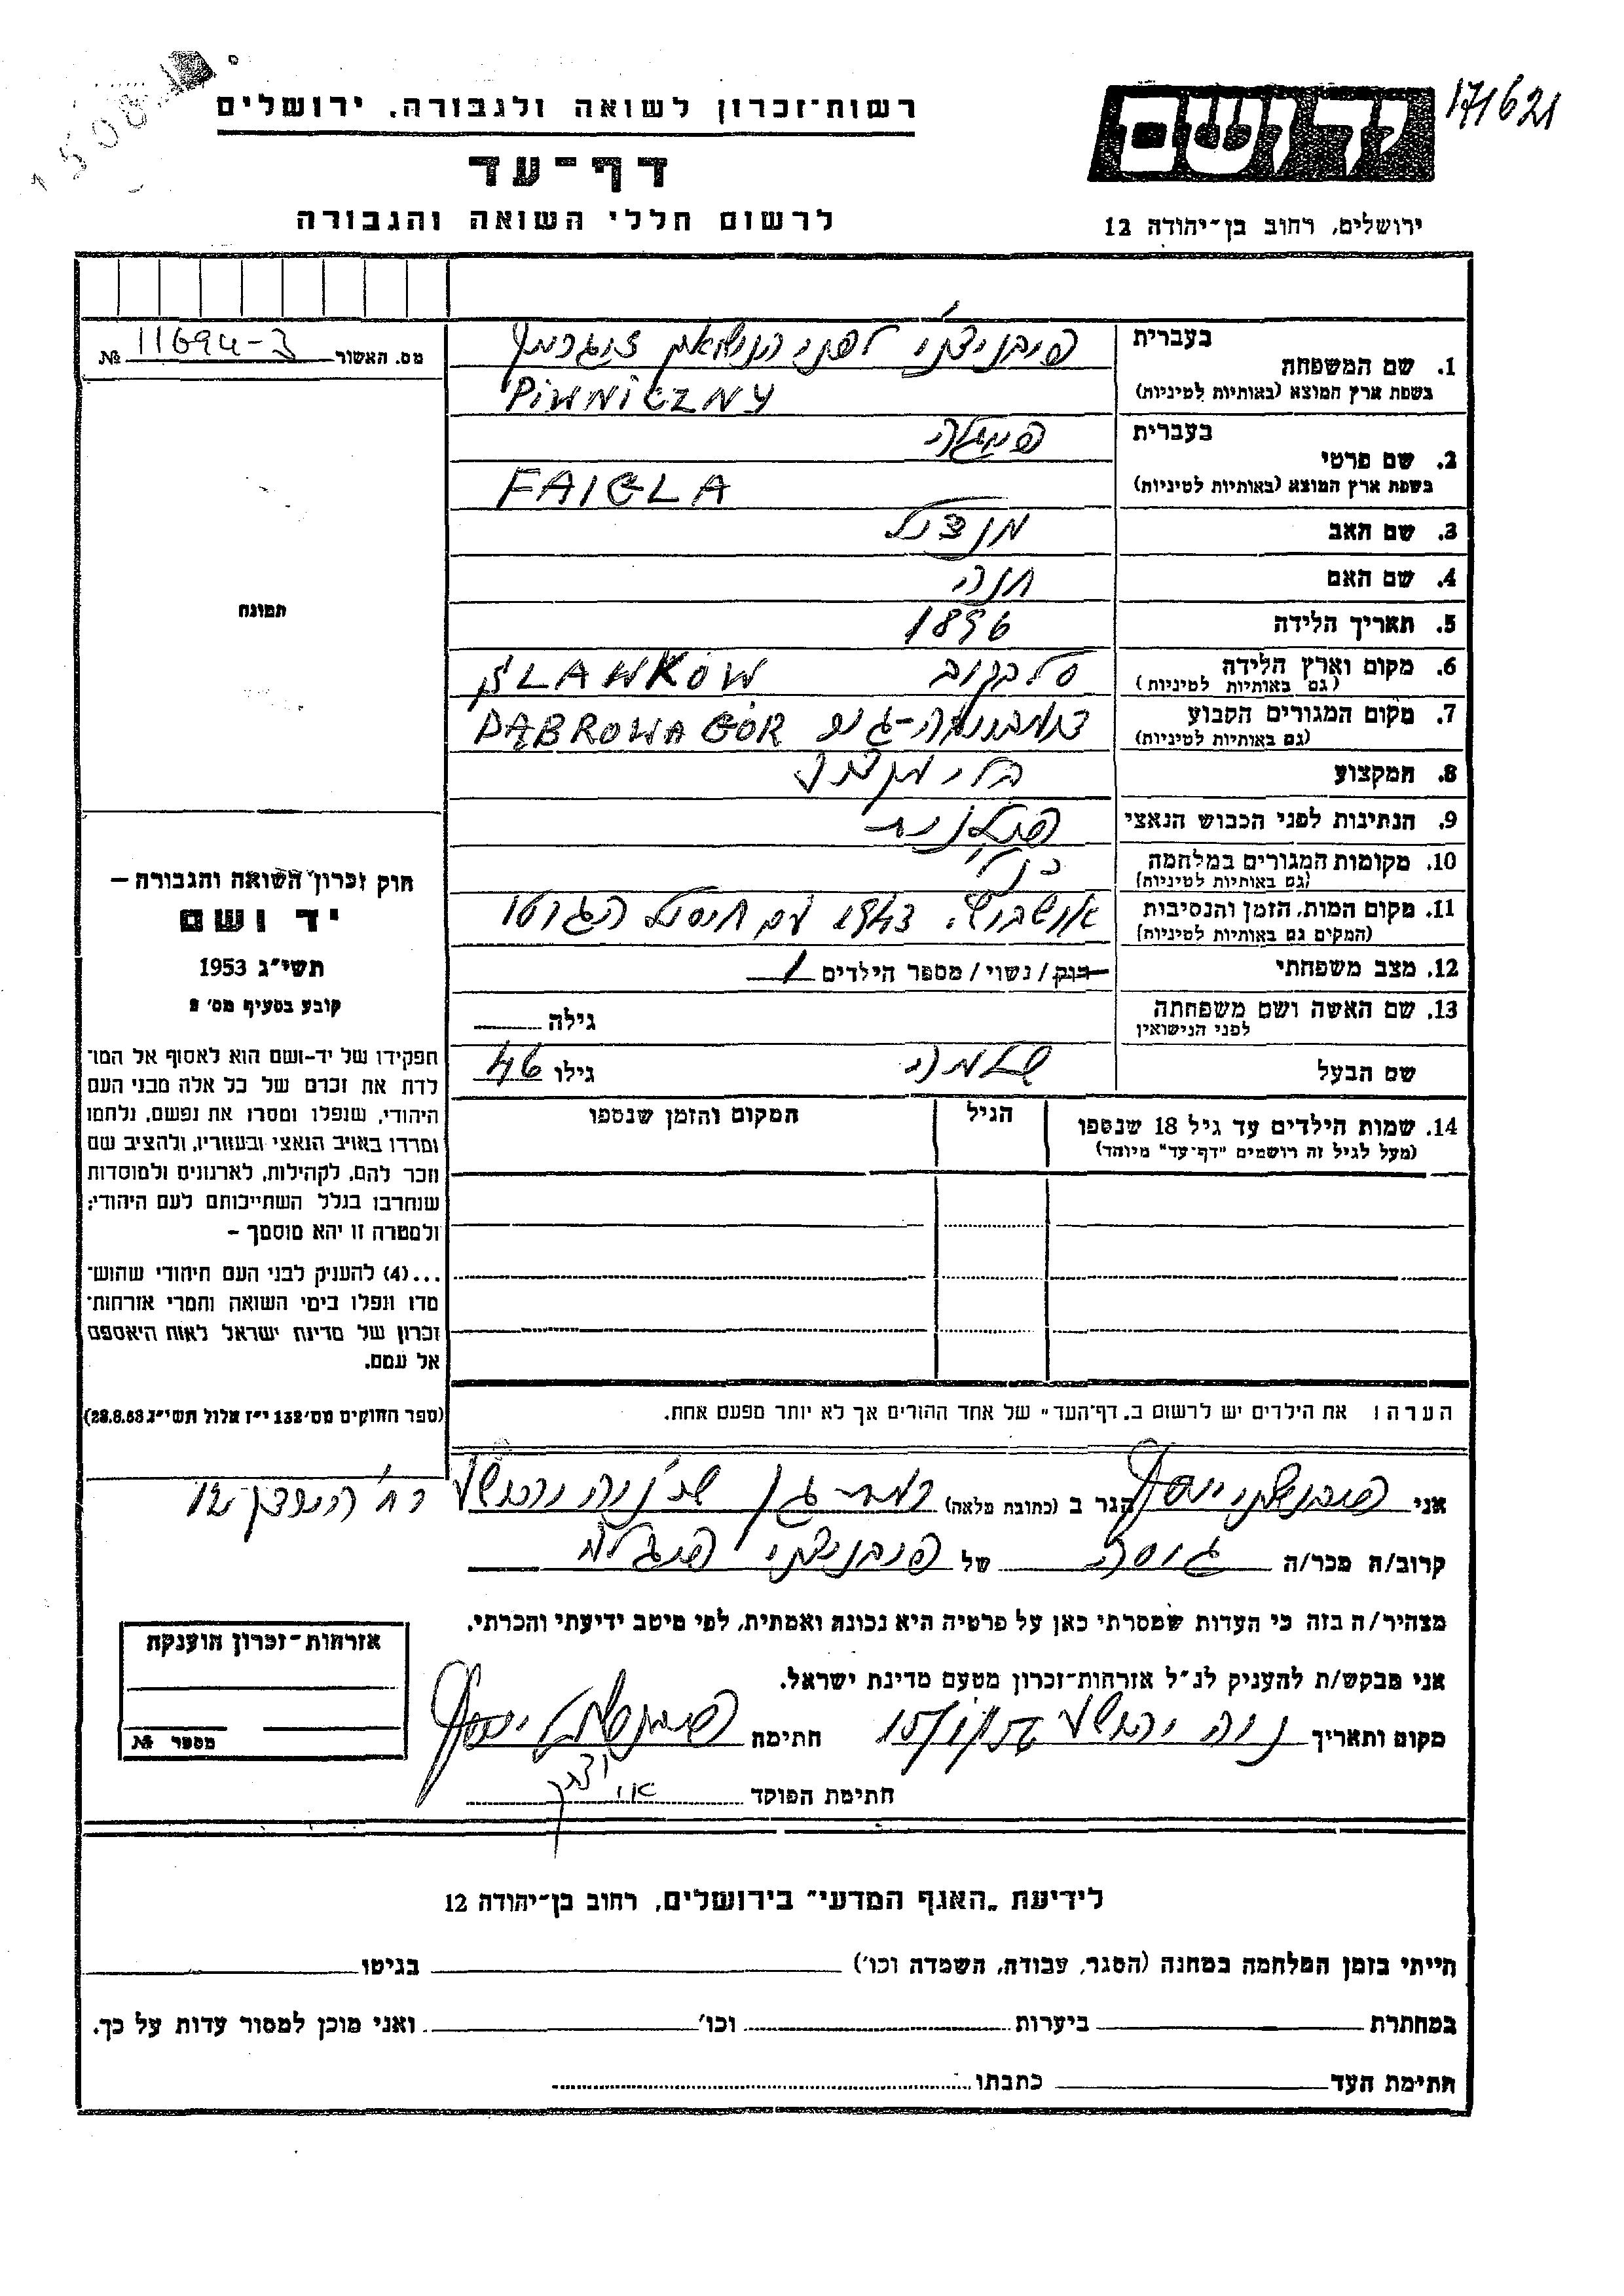 171621
רשות־זכרון לשואה ולגבורה, ירושלים
יד ושם
דף־עד
לרשום חללי השואה והגבורה
ירושלים, רחוב בן־יהודה 12
מס. האשור 11694-3 №
1. שם המשפחה
בעברית
פיבניצ'ני לפני הנישואין
בשפת ארץ המוצא (באותיות לטיניות)
PIWNICZNY
2. שם פרטי
בעברית
פייגלה
בשפת ארץ המוצא (באותיות לטיניות)
FAIGLA
3. שם האב
מנדל
4. שם האם
חנה
5. תאריך הלידה
1896
6. מקום וארץ הלידה
(גם באותיות לטיניות)
סלבקוב SLAWKOW
7. מקום המגורים הקבוע
(גם באותיות לטיניות)
DĄBROWA GÓR
8. המקצוע
בלי מקצוע
9. הנתינות לפני הכבוש הנאצי
פולנית
10. מקומות המגורים במלחמה
(גם באותיות לטיניות)
כנ"ל
11. מקום המות, הזמן והנסיבות
(המקום גם באותיות לטיניות)
אושביץ. 1943 עם חיסול הגטו
12. מצב משפחתי
רווק / נשוי / מספר הילדים 1
13. שם האשה ושם משפחתה
לפני הנישואין
גילה
שם הבעל
שלמה
גילו 46
14. שמות הילדים עד גיל 18 שנספו
(מעל לגיל זה רושמים "דף־עד" מיוחד)
הגיל
המקום והזמן שנספו
הערה: את הילדים יש לרשום ב„דף־העד" של אחד ההורים אך לא יותר מפעם אחת.
תמונה
חוק זכרון השואה והגבורה —
יד ושם
תשי"ג 1953
קובע בסעיף מס' 2
תפקידו של יד־ושם הוא לאסוף אל המו־
לדת את זכרם של כל אלה מבני העם
היהודי, שנפלו ומסרו את נפשם, נלחמו
ומרדו באויב הנאצי ובעוזריו, ולהציב שם
וזכר להם, לקהילות, לארגונים ולמוסדות
שנחרבו בגלל השתייכותם לעם היהודי;
ולמטרה זו יהא מוסמך –
...(4) להעניק לבני העם היהודי שהוש־
מדו ונפלו בימי השואה והמרי אזרחות־
זכרון של מדינת ישראל לאות היאספם
אל עמם.
(ספר החוקים מס' 132 י"ז אלול תשי"ג 28.8.53)
אני פיבניצ'ני יוסף הגר ב (כתובת מלאה) רמת-גן שכ' נוה יהושע רח' 12
קרוב/ה מכר/ה של פיבניצ'ני פייגלה
מצהיר/ה בזה כי העדות שמסרתי כאן על פרטיה היא נכונה ואמתית, לפי מיטב ידיעתי והכרתי.
אני מבקש/ת להעניק לנ"ל אזרחות־זכרון מטעם מדינת ישראל.
מקום ותאריך נוה יהושע חתימה פיבניצ'ני יוסף
חתימת הפוקד
אזרחות־זכרון הוענקה
מספר №
לידיעת „האגף המדעי" בירושלים, רחוב בן־יהודה 12
הייתי בזמן המלחמה במחנה (הסגר, עבודה, השמדה וכו') בגיטו
במחתרת ביערות וכו' ואני מוכן למסור עדות על כך.
חתימת העד כתבתו